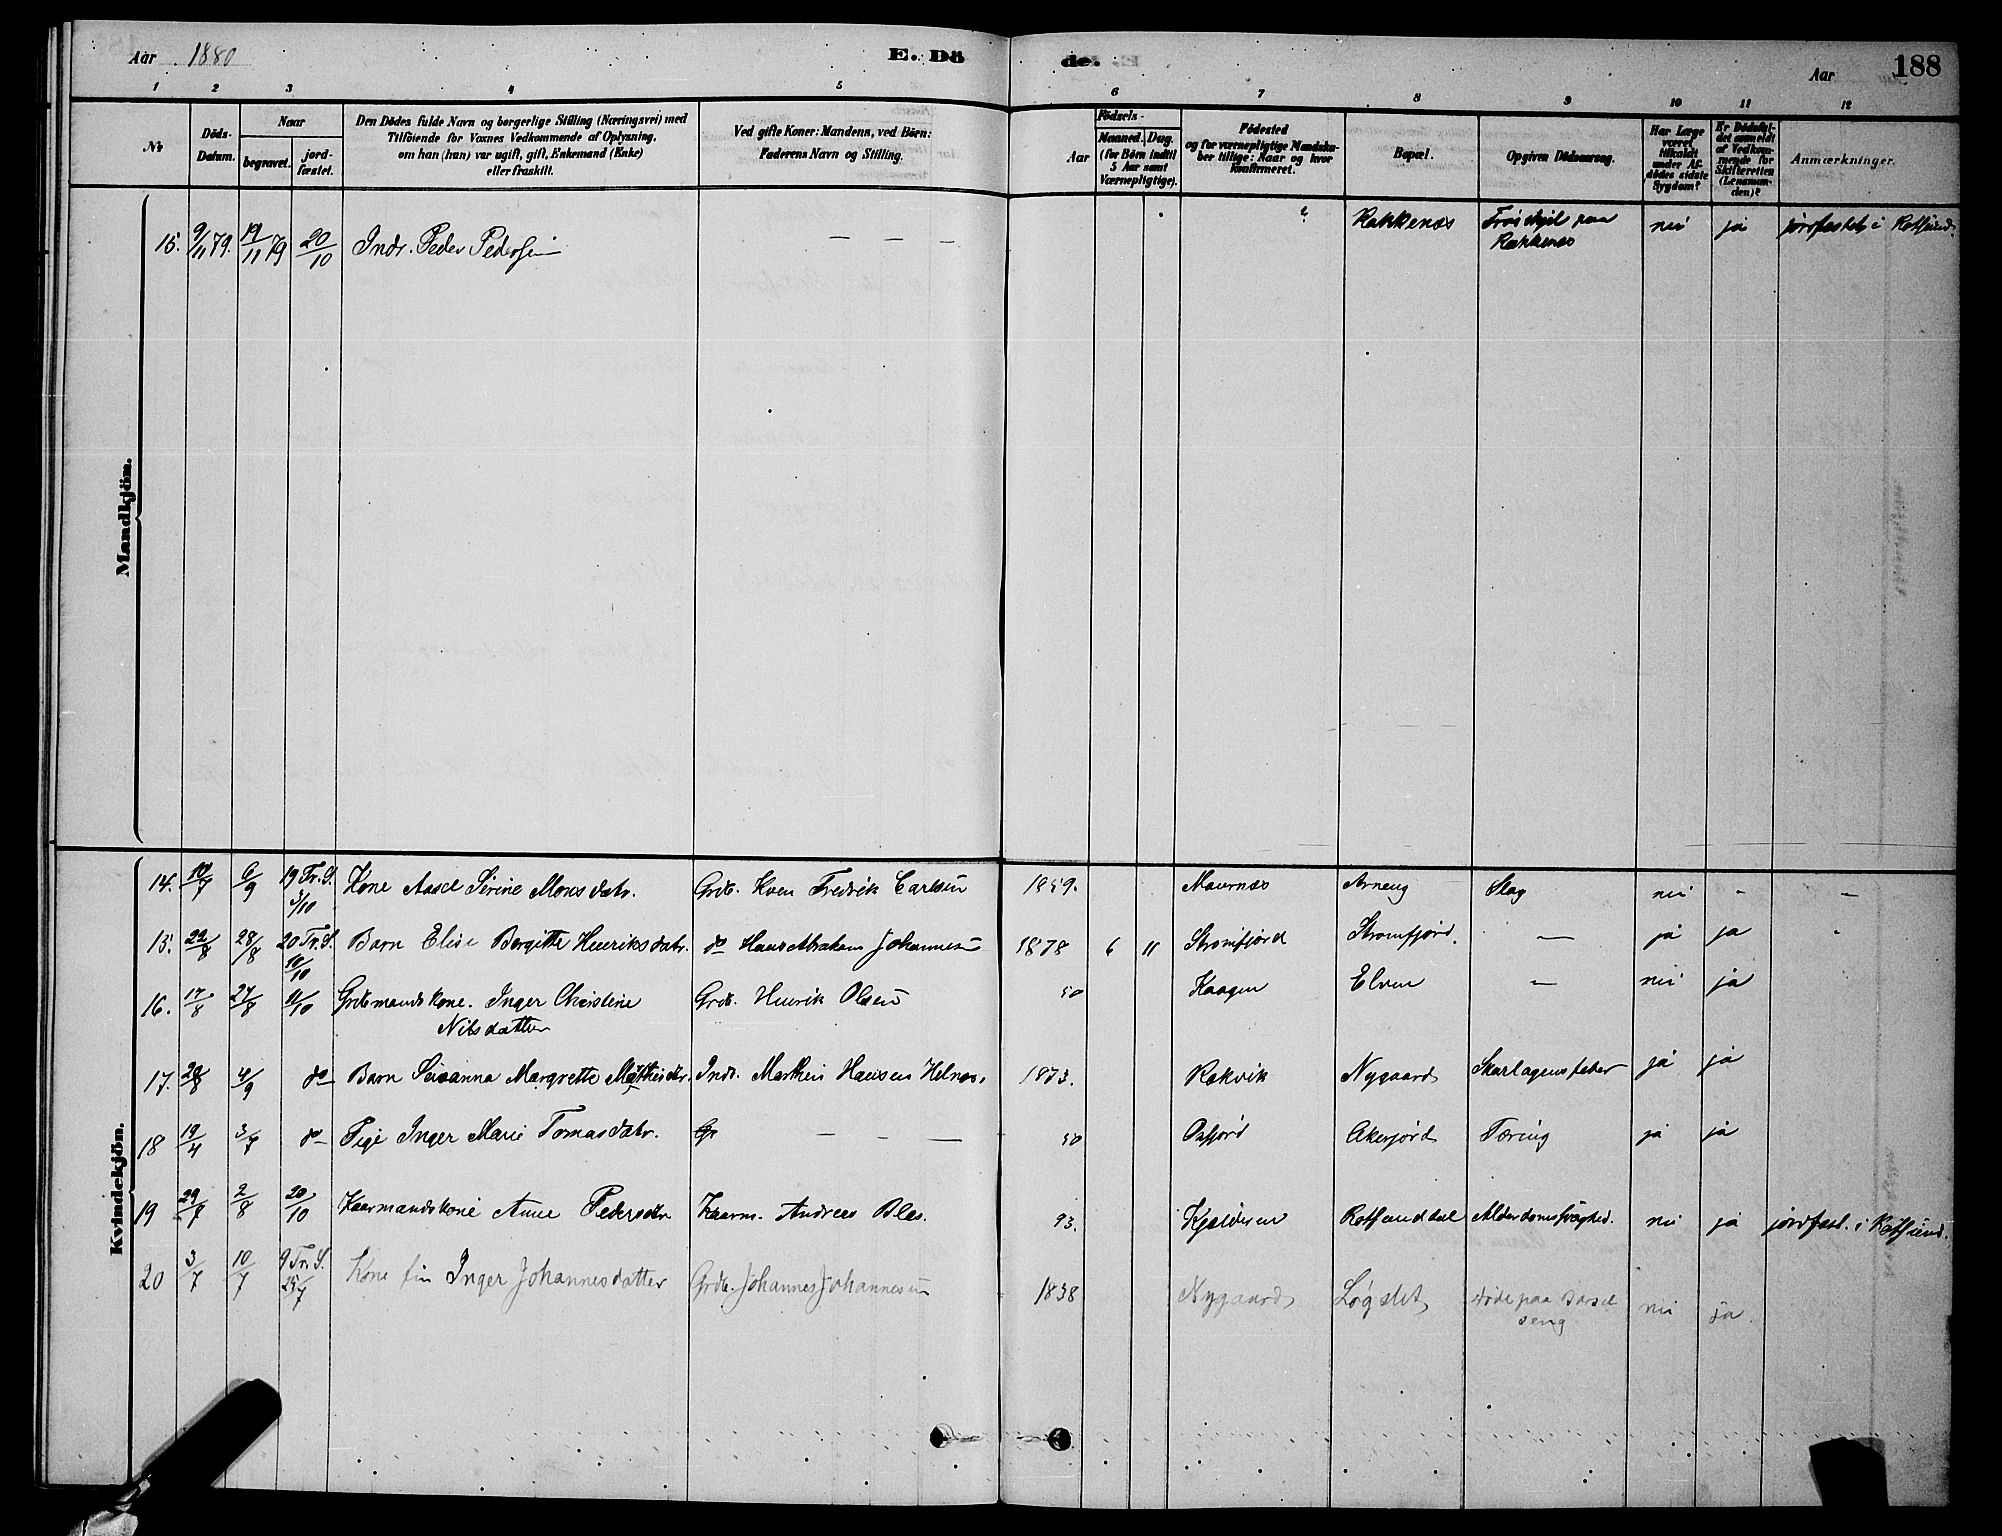 Aar 1880
E. Dö
de.
Aar
188
1 2 3 4 5 6 7 8 9 10 11 12
No
Döds-
Datum.
Naar
begravet.
jord-
fæstet.
Den Dödes fulde Navn og borgerlige Stilling (Næringsvei) med
Tilföiende for Voxnes Vedkommende af Oplysning,
om han (hun) var ugift, gift, Enkemand (Enke)
eller fraskilt.
Ved gifte Koner: Mandens, ved Börn:
Faderens Navn og Stilling.
Födsels-
Aar
Maaned. Dag.
(for Börn indtil
5 Aar samt
Værnepligtige).
Födested
og for værnepligtige Mandskaber
ber tillige: Naar og hvor
konfirmeret.
Bopæl.
Opgiven Dödsaarsag.
Har Læge
været
tilkaldt
under Af-
dödes sidste
Sygdom?
Er Dödsfal-
det anmeldt
af Vedkom-
mende for
Skifteretten
(Lensman-
den)?
Anmærkninger.
Mandkjön.
15. 9/11 79. 19/11 79 20/10 Indr. Peder Pedersen — — — Rakkenæs nei ja jordfæstet i Rotsund.
Rakkenæs
Kvindekjön.
14. 10/7 6/9 19 Tr. S. 3/10 Kone Aasel Serine Monsdatr. Grdb. Kven Fredrik Carlsen 1859. Maurnæs Arneng Slag nei - —
15. 22/8 28/8 20 Tr. S. 10/10 Barn Elise Bergitte Henriksdatr. do Hans Abraham Johannesen 1878 6 11 Stromfjord Stromfjord. — ja ja
16. 17/8 27/8 11/10 Grdbmandskone. Inger Christine
Nilsdatter
Grdb. Henrik Olsen 50 Kaagen Elven — nei ja
17. 28/8 4/9 do Barn Susanna Margrethe Mathisdtr. Inds. Mathis Hansen Helnæs. 1873. Rakvik Nygaard Skarlagensfeber ja ja
18 19/4 3/7 do Pige Inger Marie Tomasdatr. — — — 50 Oxfjord Akerjord Tæring ja ja
19 29/7 2/8 20/10 Kaarmandskone Anne Pedersdtr Kaarm. Andreas Blas. 93. Kjelderen Rotsunddal Alderdomssvaghed. nei ja jordfæst. i Rotsund.
20 3/7 10/7 9 Tr. S. 25/7 Kone fin Inger Johannesdatter Grdb. Johannes Johannesen 1838 Nygaard Løgslet døde paa Barsel
seng
nei ja.